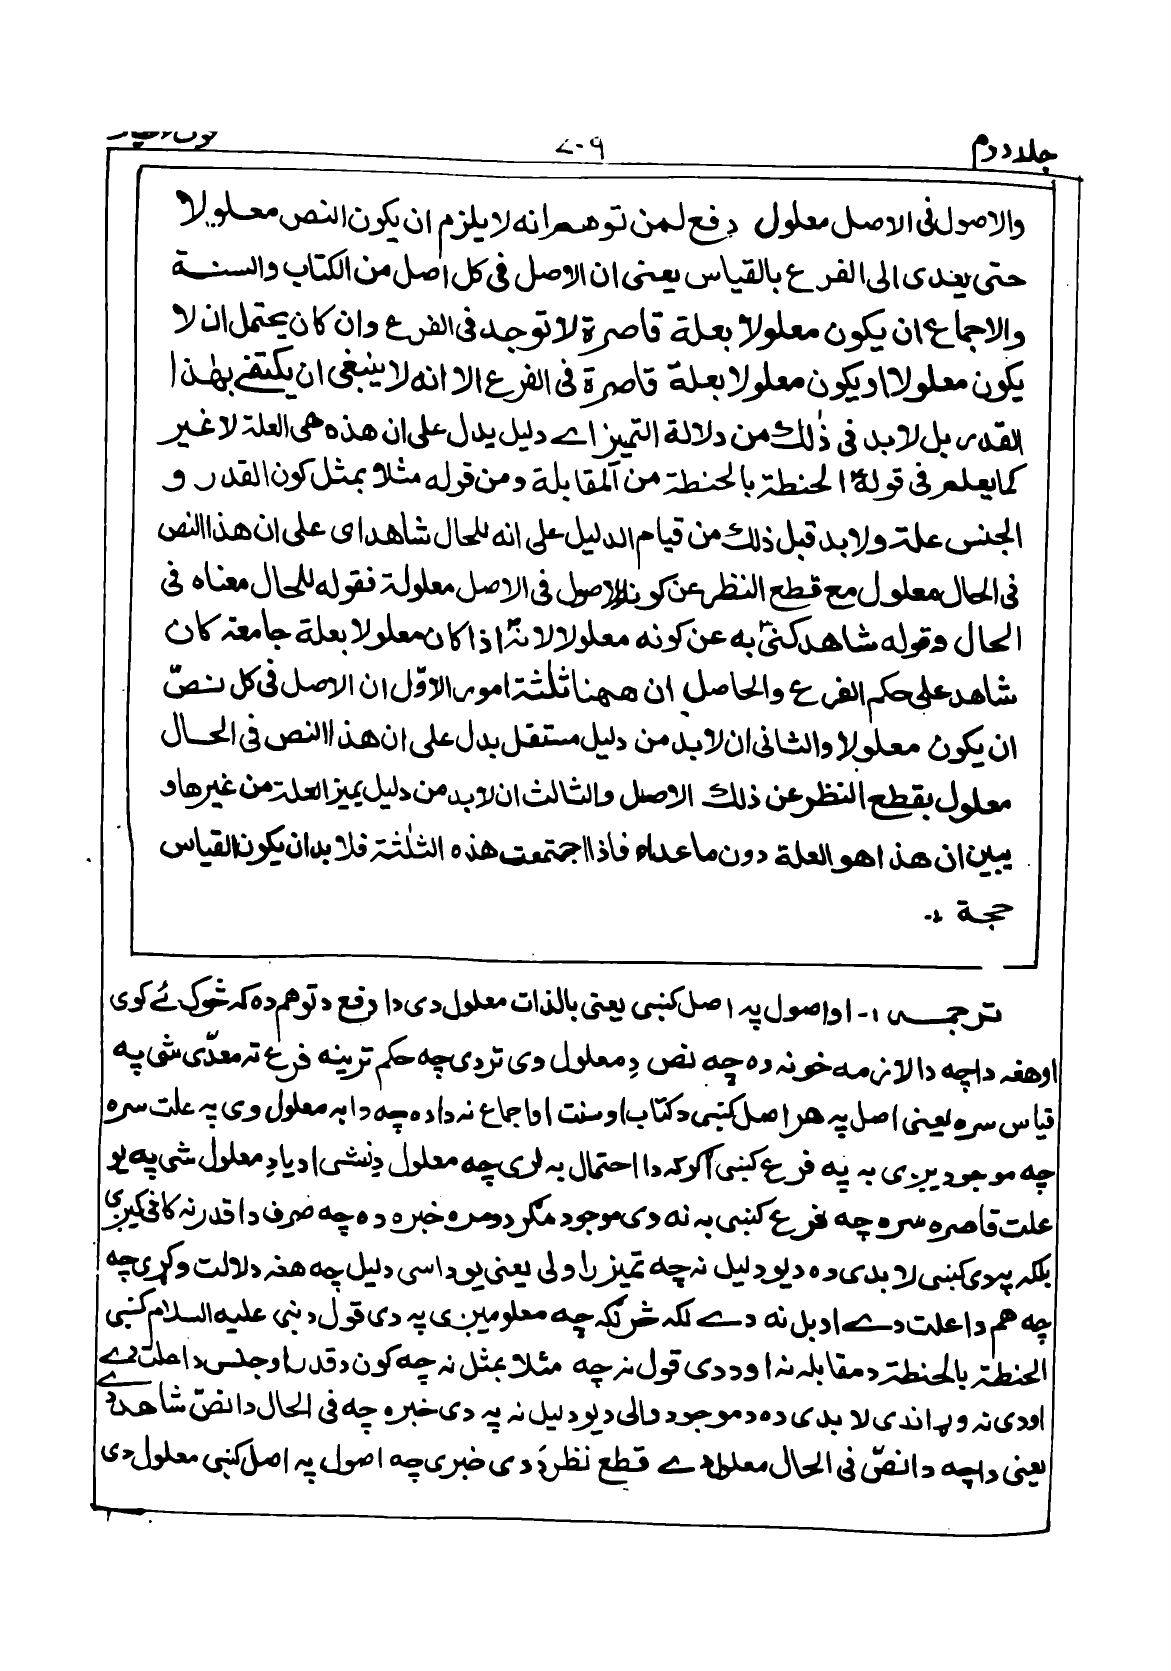 جلد دوم
۷۰۹
والاصول فی الاصل معلول دفع لمن توھم انه لا یلزم ان یکون النص معلولا
حتی یعدی الی الفرع بالقیاس یعنی ان الاصل فی کل اصل من الکتاب والسنة
والاجماع ان یکون معلولا بعلة قاصرة لا توجد فی الفرع وان کان یحتمل ان لا
یکون معلولا او یکون معلولا بعلة قاصرة فی الفرع الا انه لا ینبغی ان یکتفے بھٰذا
القدر بل لا بد فی ذٰلك من دلالة التمیز اے دلیل یدل علی ان ھذه ھی العلة لا غیر
کما یعلم فی قوله الحنطة بالحنطة من المقابلة ومن قوله مثلا بمثل کون القدر و
الجنس علة ولا بد قبل ذلك من قیام الدلیل علی انه للحال شاھد ای علی ان ھذا النص
فی الحال معلول مع قطع النظر عن کون الاصول فی الاصل معلولة فقوله للحال معناه فی
الحال وقوله شاھد کنی به عن کونه معلولا لانه اذا کان معلولا بعلة جامعة کان
شاھد علی حکم الفرع والحاصل ان ھھنا ثلٰثة امور الاوّل ان الاصل فی کل نصّ
ان یکون معلولا والثانی ان لا بد من دلیل مستقل یدل علی ان ھذا النص فی الحال
معلول بقطع النظر عن ذلك الاصل والثالث ان لا بد من دلیل یمیز العلة من غیرھا و
یبین ان ھذا ھو العلة دون ما عداه فاذا اجتمعت ھذه الثلٰثة فلا بد ان یکون القیاس
حجة ۔
ترجمه ۱۔ او اصول په اصل کښی یعنی بالذات معلول دی دا دفع د توھم ده که څوک ئے کوی
او ھغه دا چه دا لازمه خو نه ده چه نص دِ معلول وی تردی چه حکم ترینه فرع ته معدّی شی په
قیاس سره یعنی اصل په ھر اصل کښی د کتاب او سنت او اجماع نه دا ده چه دا به معلول وی په علت سره
چه موجودیږی به په فرع کښی اګرکه دا احتمال به لری چه معلول دِ نشی او یا دِ معلول شی په یو
علت قاصره سره چه فرع کښی به نه دی موجود مګر دومره خبره ده چه صرف دا قدر نه کافی کیږی
بلکه پدی کښی لا بدی ده د یو دلیل نه چه تمیز راولی یعنی یو داسی دلیل چه ھغه دلالت وکړی چه
چه ھم دا علت دے او بل نه دے لکه څرنګه چه معلومیږی په دی قول د نبی علیه السلام کښی
الحنطة بالحنطة د مقابله نه او د دی قول نه چه مثلا بمثل نه چه کون د قدر او جنس دا علت دے
او دی نه وړاندی لا بدی ده د موجودوالی د یو دلیل نه په دی خبره چه فی الحال دا نصّ شاھد دے
یعنی دا چه دا نصّ فی الحال معلول دے قطع نظر د دی خبری چه اصول په اصل کښی معلول دی